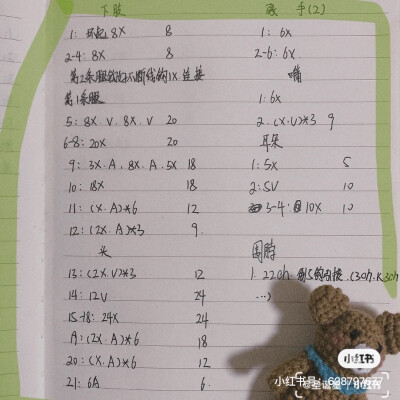 下肢
1: 环起 8X 8
2-4: 8X 8
第2条腿
1X 连接
第1条腿
5: 8X.V.8X.V 20
6-8: 20X 20
9: 3X.A.8X.A.5X 18
10: 18X 18
11: (X.A)*6 12
12: (2X.A)*3 9.
头
13: (2X.V)*3 12
14: 12V 24
15-18: 24X 24
19: (2X.A)*6 18
20: (X.A)*6 12
21: 6A 6.
手(2)
1: 6X
2-6: 6X
嘴
1: 6X
2: (X.V)*3 9
耳朵
1: 5X 5
2: 5V 10
3-4: 10X 10
围脖
1. 22ch.
小红书
小红书号: